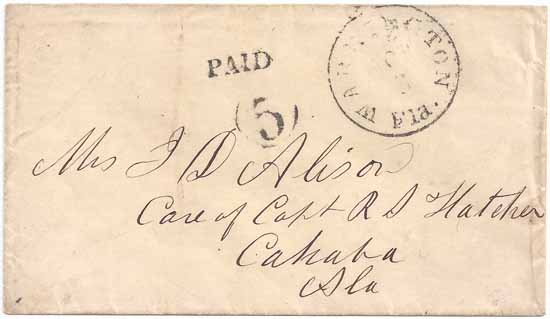 PAID
5
WARRINGTON Fla.
Mrs J D Alison
Care of Capt R S Hatcher
Cahaba
Ala